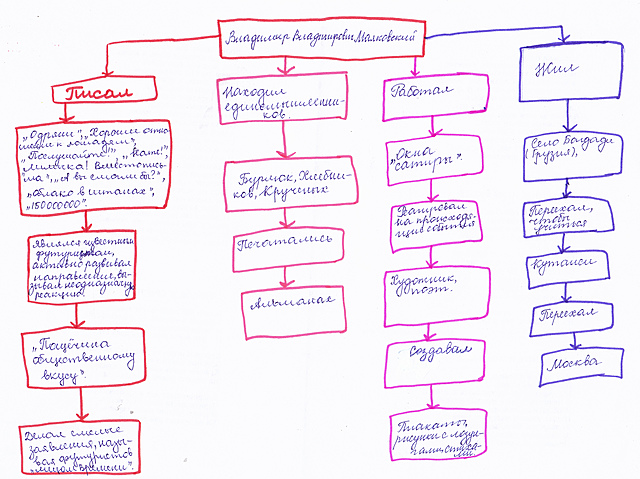 Владимир Владимирович Маяковский
Писал
„Одраши", „Хорошее отно-
шение к лошадям",
„Послушайте!", „Нате!",
„Лиличка! Вместо пись-
ма", „А вы смогли бы?",
„Облако в штанах",
„150000000".
Являлся известным
футуристом,
активно развивал
направление, вы-
зывал неоднозначную
реакцию.
„Пощёчина
общественному
вкусу".
Делал смелые
заявления, назы-
вая футуристов
„лицом времени".
Находил
единомышленни-
ков.
Бурлюк, Хлебни-
ков, Кручёных
Печатались
Альманах
Работал
„Окна
сатиры".
Реагировал
на происходя-
щие события
Художник,
поэт.
Создавал
Плакаты,
рисунки с лозун-
гами, стиха-
ми.
Жил
Село Багдади
(Грузия),
Переехал,
чтобы
учиться
Кутаиси
Переехал
Москва